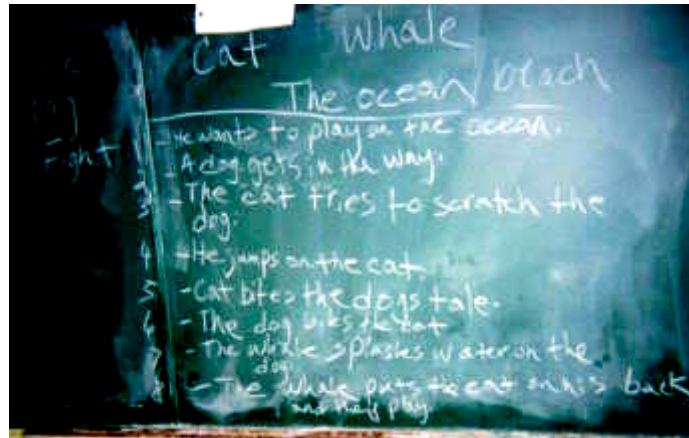 Cat Whale
The ocean/beach
- He wants to play on the ocean.
- A dog gets in the way.
3 - The cat tries to scratch the
dog.
4 - He jumps on the cat
5 - Cat bites the dogs tale.
6 - The dog bites the cat
7 - The whale splashes water on the
dog
8 - The whale puts the cat on his back
and they play.